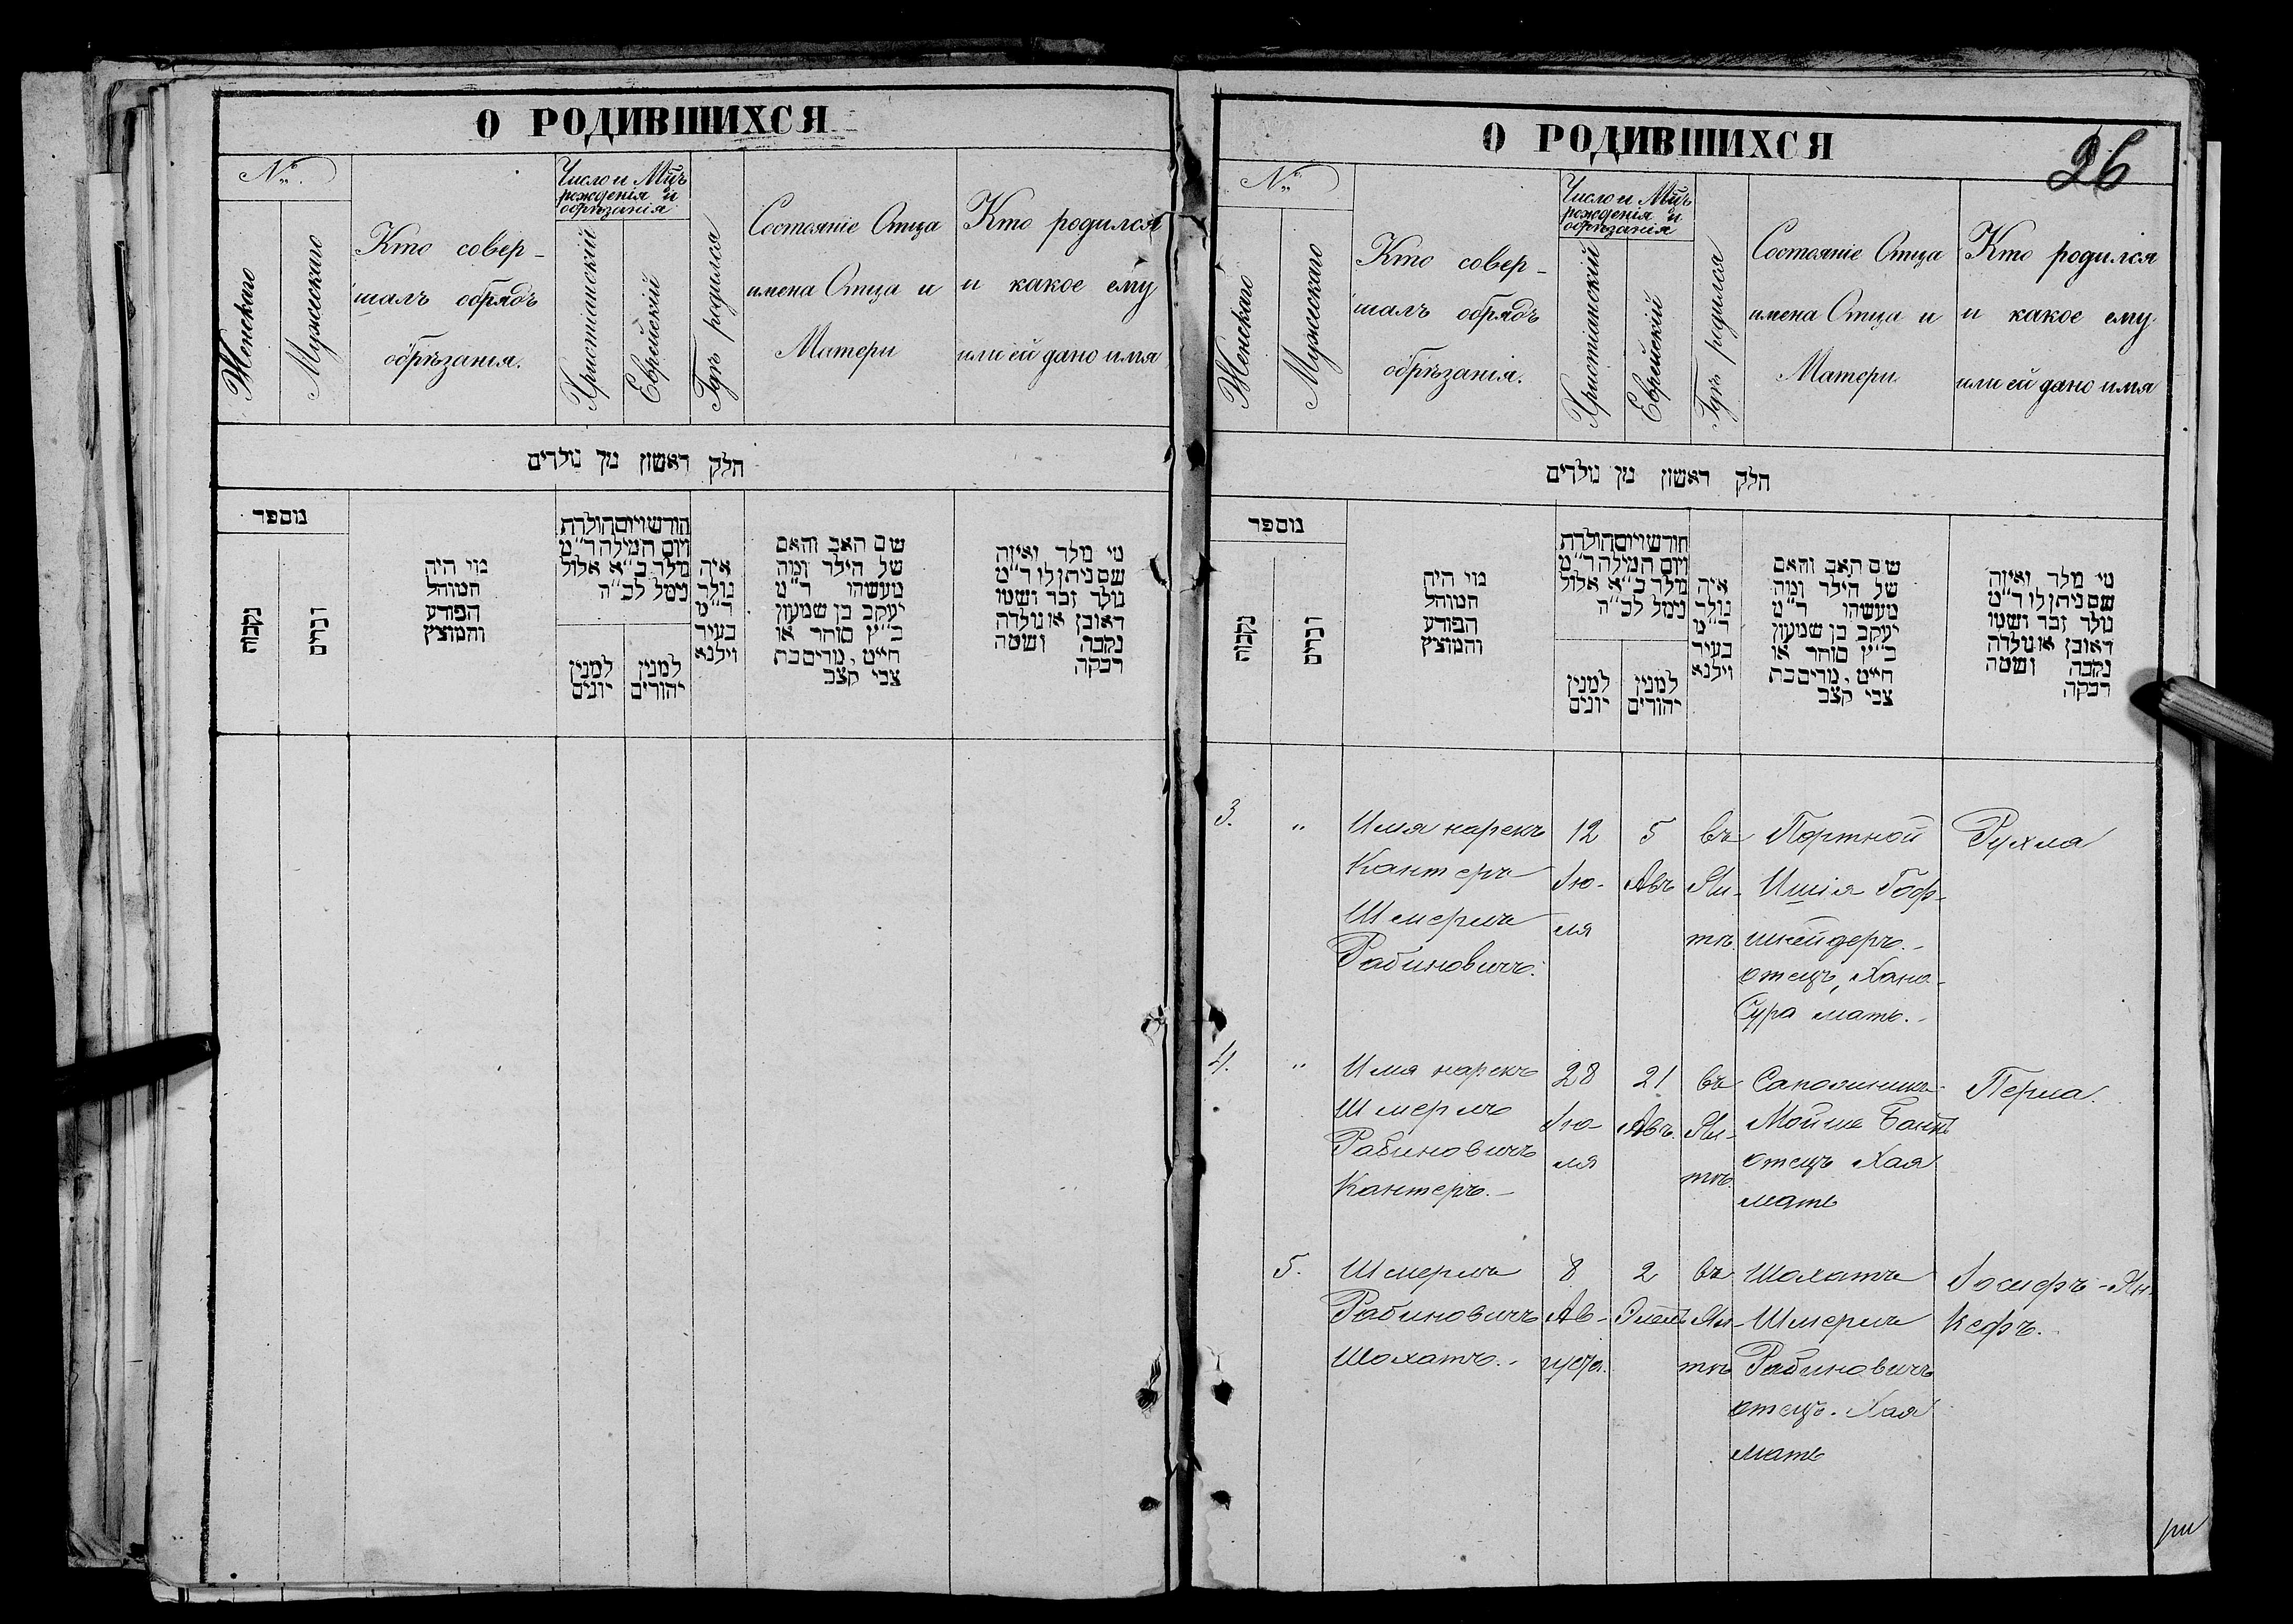 О РОДИВШИХСЯ
№
Женскаго
Мужескаго
Кто совер-
шалъ обрядъ
обрѣзанія.
Число и Мѣцъ
рожденія и
обрѣзанія
Христіанскій
Еврейскій
Гдѣ родился
Состояніе Отца
имена Отца и
Матери
Кто родился
и какое ему
или ей дано имя
חלק ראשון מן נולדים
מוספר
נקבות
זכרים
מוי היה
המוהל
הפורע
והמוצץ
חודש ויום הולדת
ויום המילה ד״מ
נולד כ״א אלול
נימל לכ״ה
למנין
יונים
למנין
יהודים
איה
נולד
ד״מ
בעיר
וילנא
שם האב והאם
של הילד ומה
מעשהו ד״מ
יעקב בן שמעון
כ״ץ סוחר או
חייט, מרים בת
צבי קצב
מי נולד ואיזה
שם ניתן לו ד״מ
נולד זכר ושמו
ראובן או נולדה
נקבה ושמה
רבקה
О РОДИВШИХСЯ
26
№
Женскаго
Мужескаго
Кто совер-
шалъ обрядъ
обрѣзанія.
Число и Мѣцъ
рожденія и
обрѣзанія
Христіанскій
Еврейскій
Гдѣ родился
Состояніе Отца
имена Отца и
Матери
Кто родился
и какое ему
или ей дано имя
חלק ראשון מן נולדים
מוספר
נקבות
זכרים
מוי היה
המוהל
הפורע
והמוצץ
חודש ויום הולדת
ויום המילה ד״מ
נולד כ״א אלול
נימל לכ״ה
למנין
יונים
למנין
יהודים
איה
נולד
ד״מ
בעיר
וילנא
שם האב והאם
של הילד ומה
מעשהו ד״מ
יעקב בן שמעון
כ״ץ סוחר או
חייט, מרים בת
צבי קצב
מי נולד ואיזה
שם ניתן לו ד״מ
נולד זכר ושמו
ראובן או נולדה
נקבה ושמה
רבקה
3.
"
Имя нарекъ
Кантеръ
Шмерль
Рабиновичъ.
12
Ію-
ля
5
Авъ
въ
Яи-
тѣ.
Портной
Ишія Гоф-
шнейдеръ.-
отецъ, Хана-
Сура мать.-
Рухла
4.
"
Имя нарекъ
Шмерль
Рабиновичъ
Кантеръ.-
28
Ію-
ля
21
Авъ.
въ
Яи-
тѣ.
Сапожникъ
Мойше
отецъ Хая
мать
Перла.
5.
Шмерль
Рабиновичъ
Шохатъ.-
8
Ав-
густа.
2
Элюлъ
въ
Яи-
тѣ
Шохатъ
Шмерль
Рабиновичъ
отецъ. Хая
мать
Іосифъ-Ян-
кефъ.